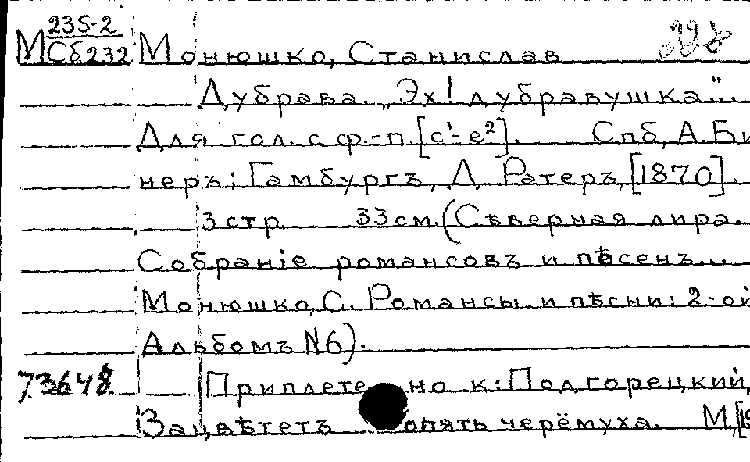 М 235-2 Сб232 Монюшко, Станислав
Дубрава. "Эх! дубравушка".
Для гол. с ф.-п. [c¹-e²]. Спб, А. Би
неръ; Гамбургъ, Д. Ратеръ, [1870].
3 стр. 33 см. (Съверная лира.
Собраніе романсовъ и пѣсенъ...
Монюшко, С. Романсы и пѣсни: 2-ой
Альбомъ №6).
73648 Приплетено к: Подгорецкий,
Зацвѣтетъ опять черёмуха. М., [19